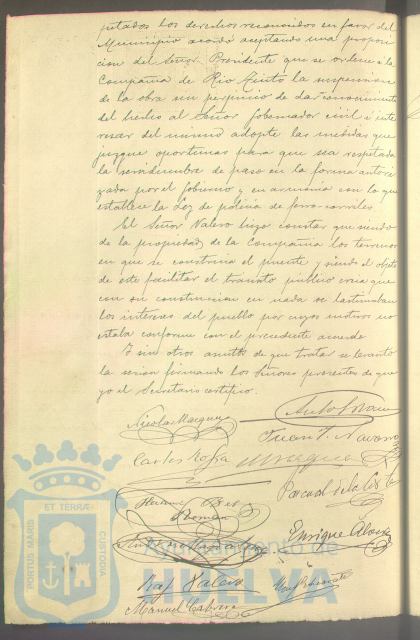 petados los derechos reconocidos en favor del
Municipio acordó aceptando una proposi
cion del Señor Presidente que se ordene a la
Compañia de Rio Tinto la suspension
de la obra sin perjuicio de dar conocimiento
del hecho al Señor Gobernador civil é inte
resar del mismo adopte las medidas que
juzgue oportunas para que sea respetada
la servidumbre de paso en la forma autori
zada por el Gobierno y en armonia con lo que
establece la Ley de policia de ferro-carriles
El Señor Valero hizo constar que siendo
de la propiedad de la Compañia los terrenos
en que se construia el puente y siendo el objeto
de este facilitar el tránsito público creia que
con su construccion en nada se lastimaban
los intereses del pueblo por cuyos motivos no
estaba conforme con el precedente acuerdo
Y sin otros asuntos de que tratar se levantó
la sesion firmando los Señores presentes de que
yo el Secretario certifico.
Nicolas Marquez
Juan J. Navarro
Carlos
Pascual de la
Enrique
Raf Valero
Manuel Cabrera
ET TERRÆ
PORTUS MARIS
CUSTODIA
Ayuntamiento de
HUELVA